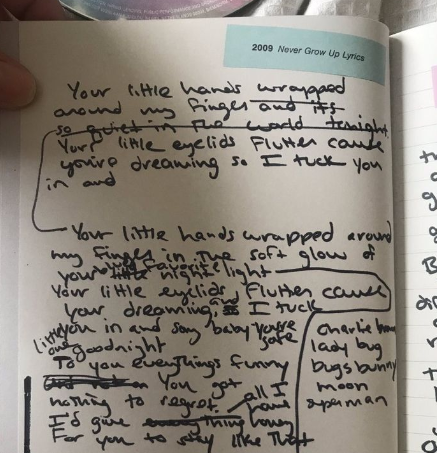 2009 Never Grow Up Lyrics
Your little hands wrapped
around my finger and its
so quiet in the world tonight
Your little eyelids Flutter cause
you're dreaming so I tuck you
in and
Your little hands wrapped around
my finger in the soft glow of
your little night light
favorite
Your little eyelids Flutter cause
your dreaming, I tuck
you in and say baby you're
safe
little one
goodnight
To you everythings funny
You got
nothing to regret
all I
have
I'd give everything honey
For you to stay like that
Charlie brown
lady bug
bugs bunny
moon
superman